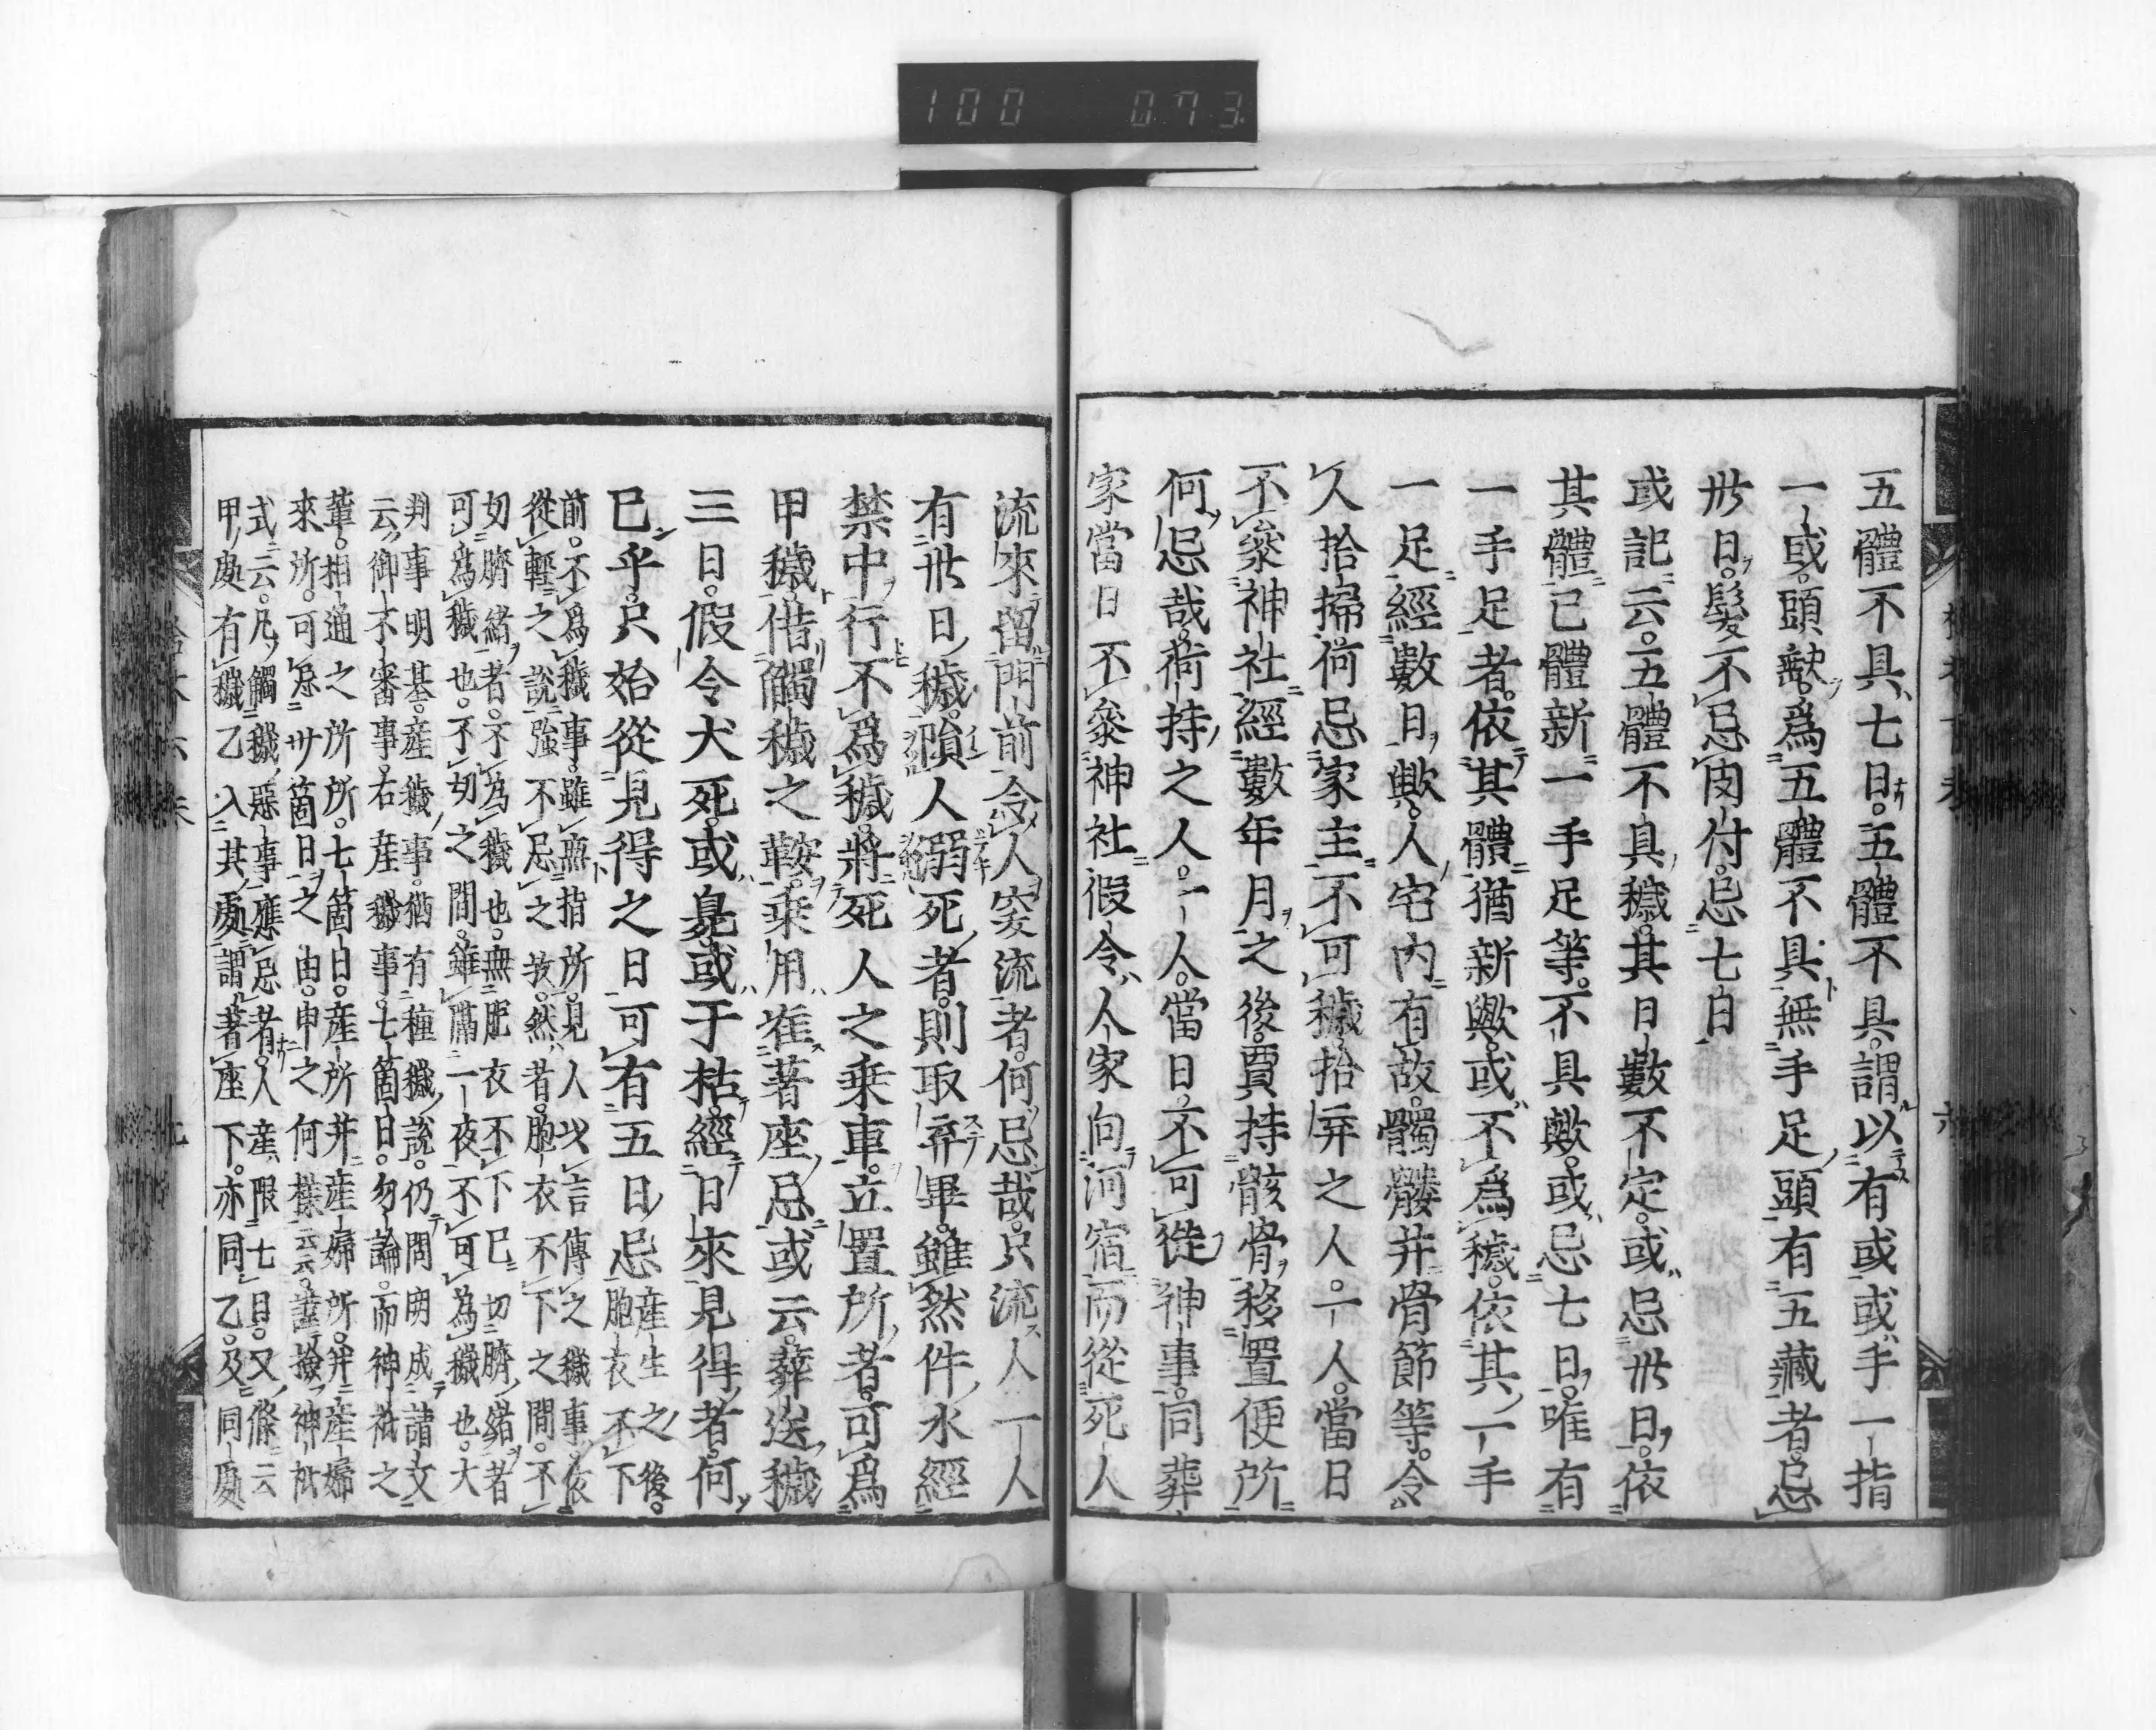 100 073
五體不具七日五體不具謂以有或或手一指
一或頭缺爲五體不具無手足頭有五藏者忌
卅日髮不忌皮付忌七日
或記云五體不具穢其日數不定或忌卅日依
其體已體新一手足等不具歟或忌七日唯有
一手足者依其體猶新歟或不爲穢依其一手
一足經數日歟人宅內有故髑髏并骨節等令
久拾掃何忌家主不可穢拾弃之人一人當日
不參神社經數年月之後賈持骸骨移置便所
何忌哉荷持之人一人當日不可從神事同葬
家當日不參神社假令人家向河宿而從死人
流來留門前令人突流者何忌哉只流人一人
有卅日穢損人溺死者則取弃畢雖然件水經
禁中行不爲穢將死人之乘車立置所者可爲
甲穢借觸穢之鞍乘用雀著座忌或云葬送穢
三日假令犬死或鳧或于枯經日來見得者何
已乎只始從見得之日可有五日忌產生之後胞衣不下
前不爲穢事雖無指所見人以言傳之穢事依
從輕之說強不忌之故然者胞衣不下之間不
切臍緒者不爲穢也無胞衣不下已切臍緒者
可爲穢也不切之間雖隔一夜不可爲穢也大
判事明基產穢事猶有種穢說仍問明成請文
云御不審事右產穢事七箇日勿論而神祇之
輩相通之所所七箇日產所并產婦所并產婦
來所可忌卅箇日之由申之何樣云云謹撿神祇
式云凡觸穢惡事應忌者人產限七日又條云
甲處有穢乙入其處謂著座下亦同乙及同處